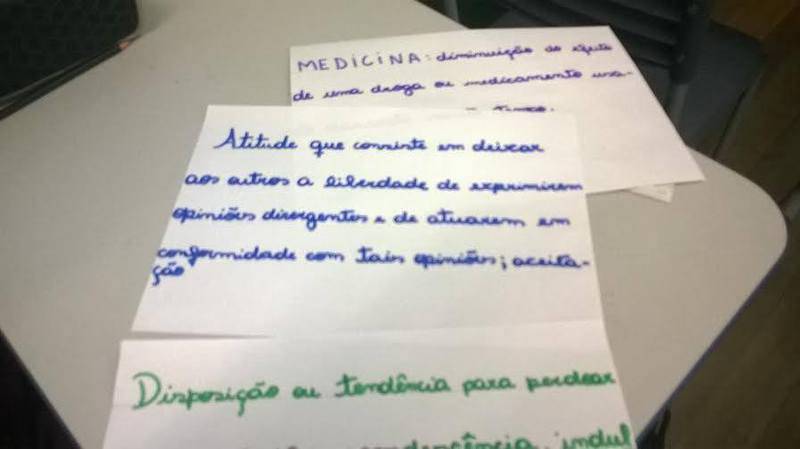 MEDICINA: diminuição do efeito
de uma droga ou medicamento usa-
Atitude que consiste em deixar
aos outros a liberdade de exprimirem
opiniões divergentes e de atuarem em
conformidade com tais opiniões; aceita-
ção
Disposição ou tendência para perdoar
indul